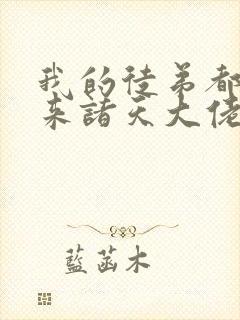 我的徒弟都
来諸天大佬
藍菡木